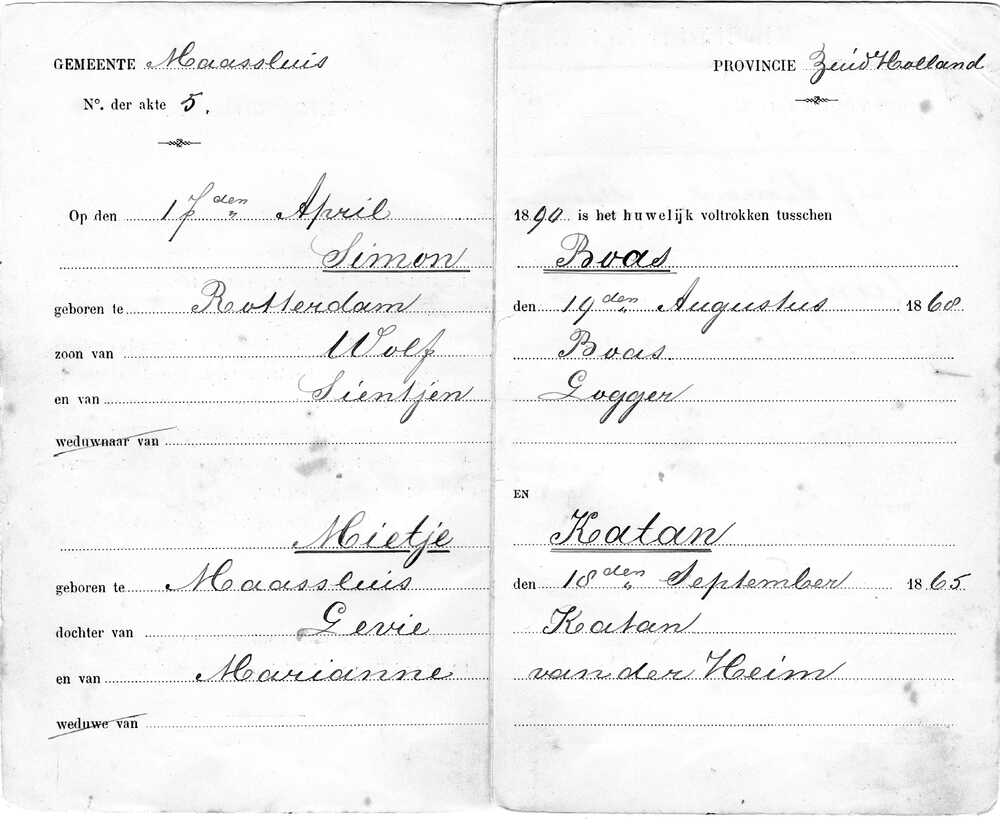 GEMEENTE Maassluis PROVINCIE Zuid Holland
No. der akte 5.
Op den 17den April 1890 is het huwelijk voltrokken tusschen
Simon Boas
geboren te Rotterdam den 19den Augustus 1868
zoon van Wolf Boas
en van Sientjen Gogger
weduwnaar van
EN
Mietje Katan
geboren te Maassluis den 18den September 1865
dochter van Levie Katan
en van Marianne van der Heim
weduwe van